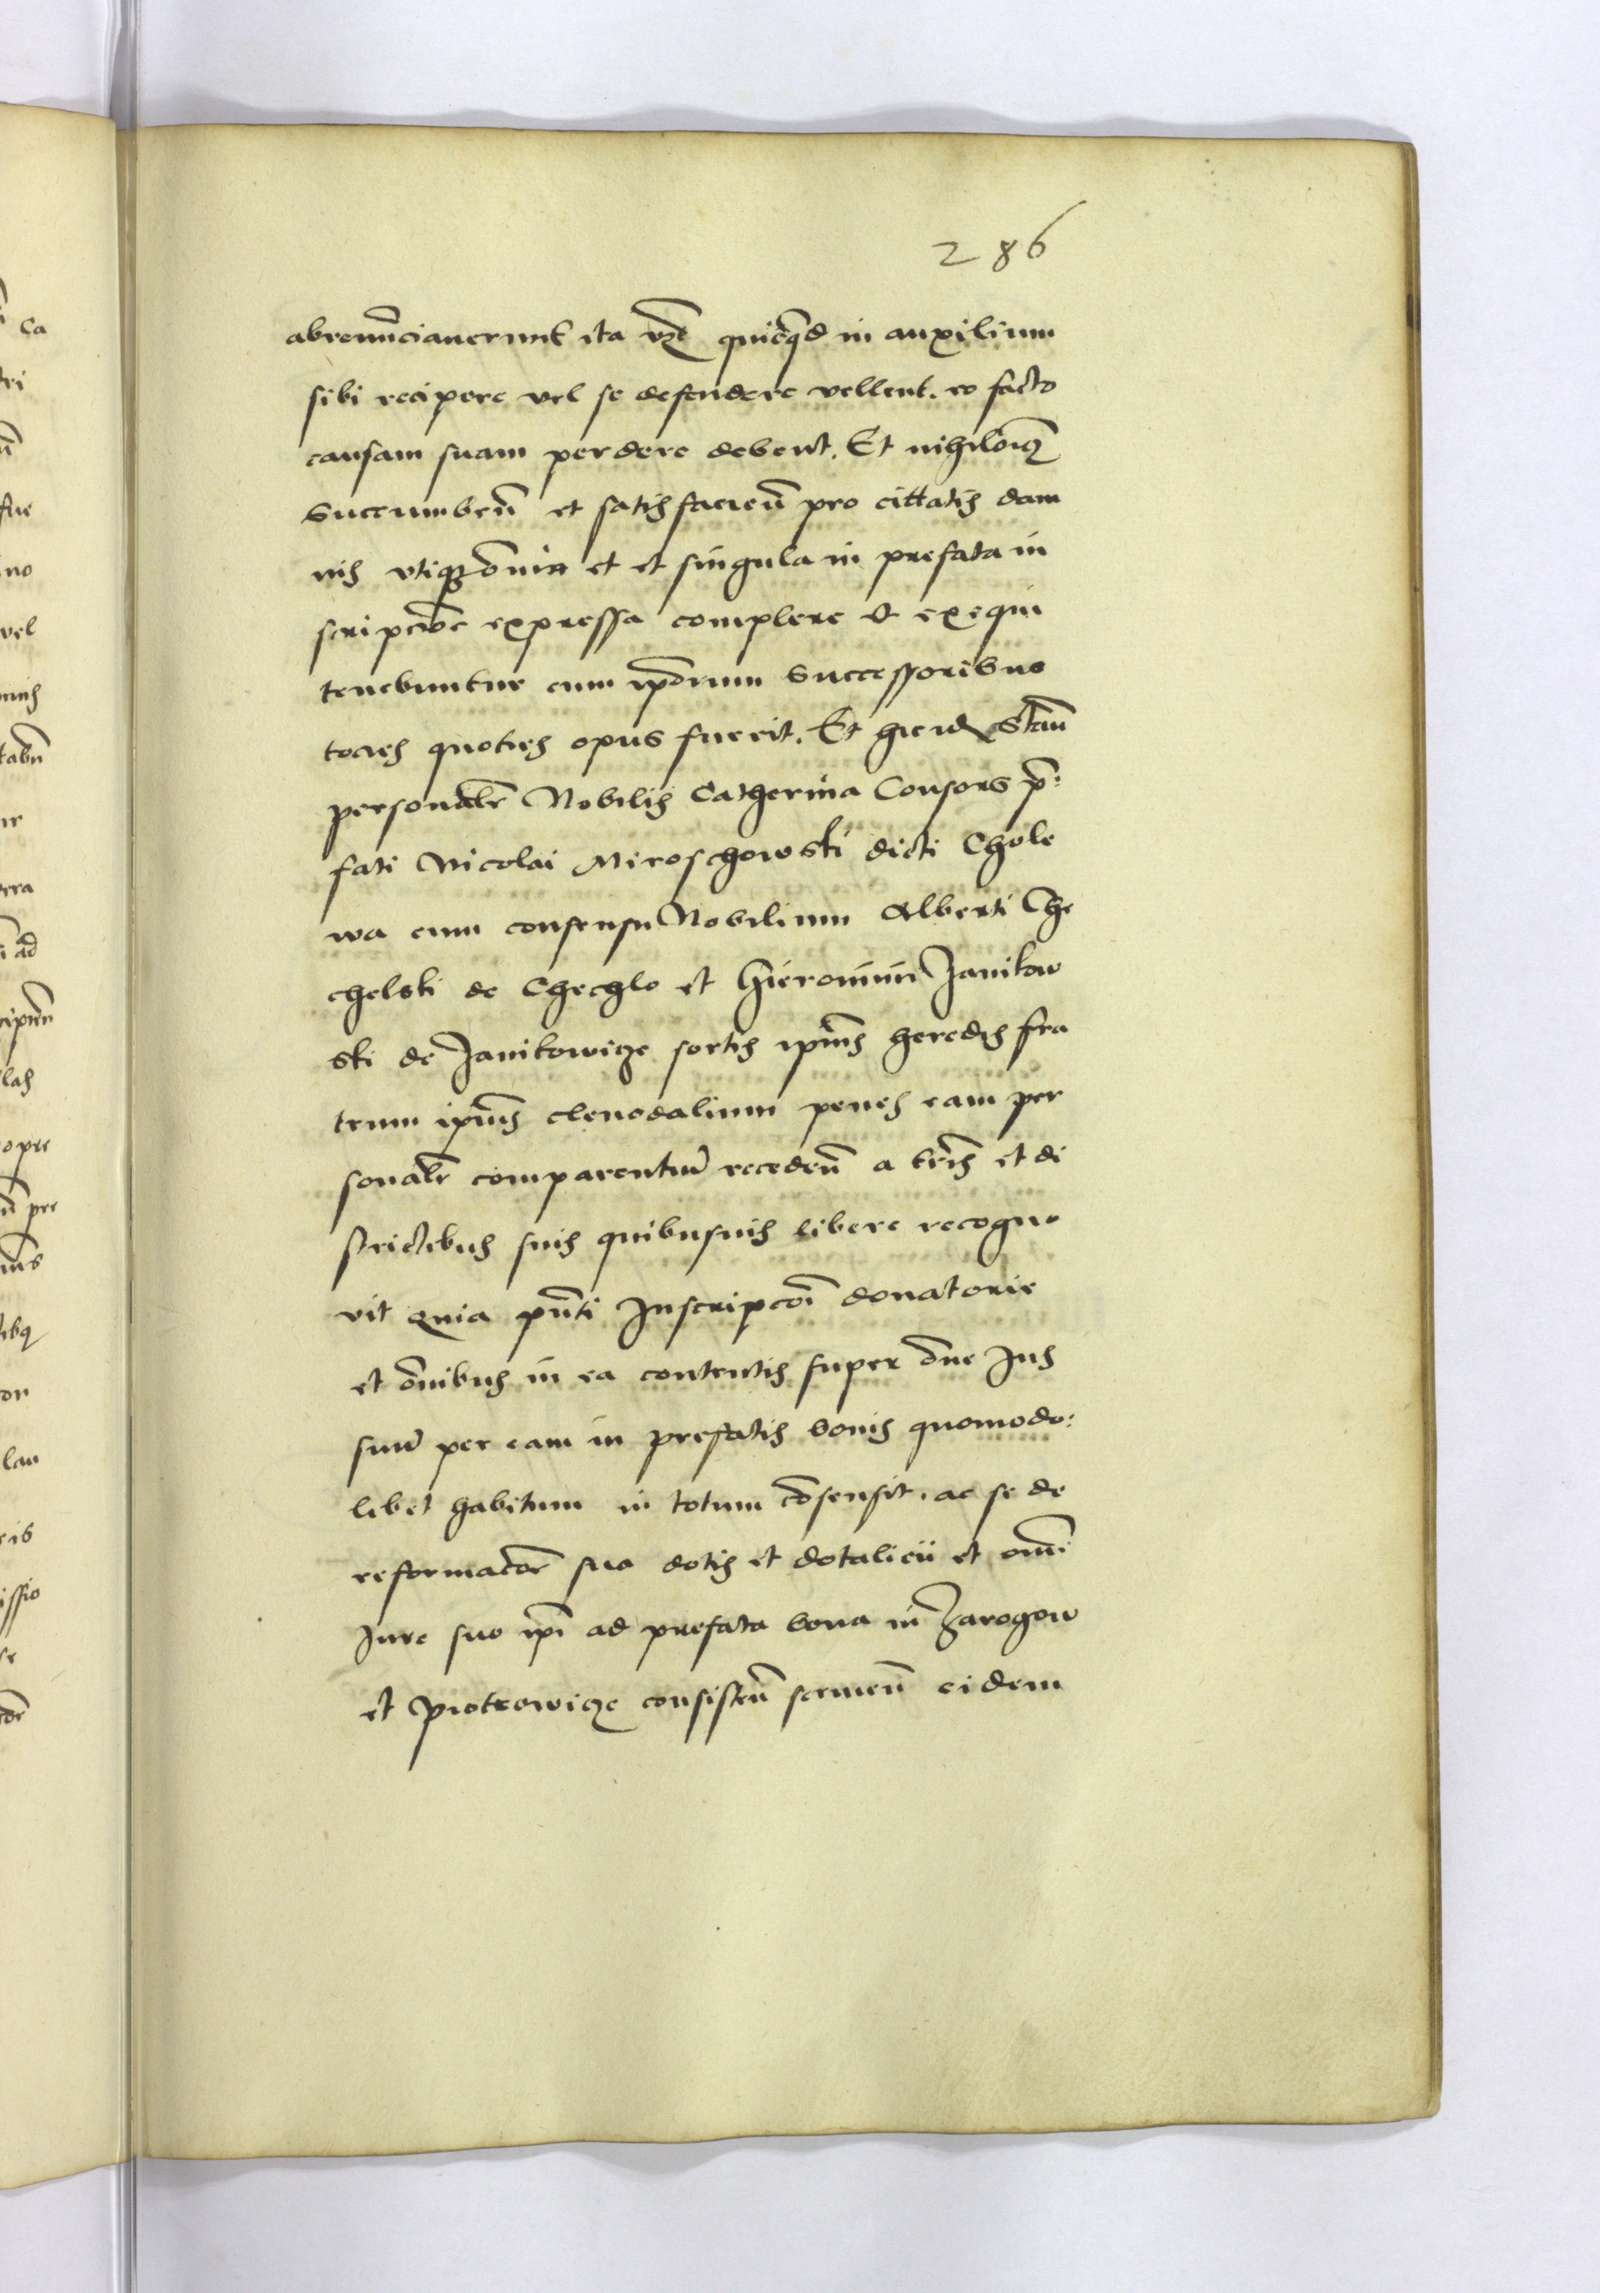 286
abrenūcianerunt ita vꝫ quicq̄d in auxilium
sibi recipere vel se defendere vellent. eo facto
causam suam perdere debent. Et nihilōiꝰ
succumbeñ et satisfacieñ pro cittatis dam
nis vtiqꝫ om̄ia et et singula in prefata in
scripcōe expressa complere et exequi
tenebuntur cum ip̄orum successoribus
tocies quoties opus fuerit. Et hic id stañ
personalr̄ Nobilis Catherina Consors p̄:
fati Nicolai Miroschowski dicti Chole
wa cum consensu Nobilium Alberti Che
chelski de Chechlo et Hieronimi Janikow
ski de Janikowicze sortis ip̄ius heredis fra
trum ip̄ius clenodalium penes eam per
sonalr̄ comparentiū recedeñ a tr̄is et di
strictibus suis quibusuis libere recogno
vit Quia p̄nti Inscripcōi donatorie
et om̄ibus in ea contentis super om̄e Jus
suū per eam in prefatis bonis quomodo:
libet habitum in totum cōsensit. ac se de
reformacōe sua dotis et dotalicii et omī
Jure suo ip̄i ad prefata bona in Zarogow
et Piotrowicze consisteñ seruieñ eidem